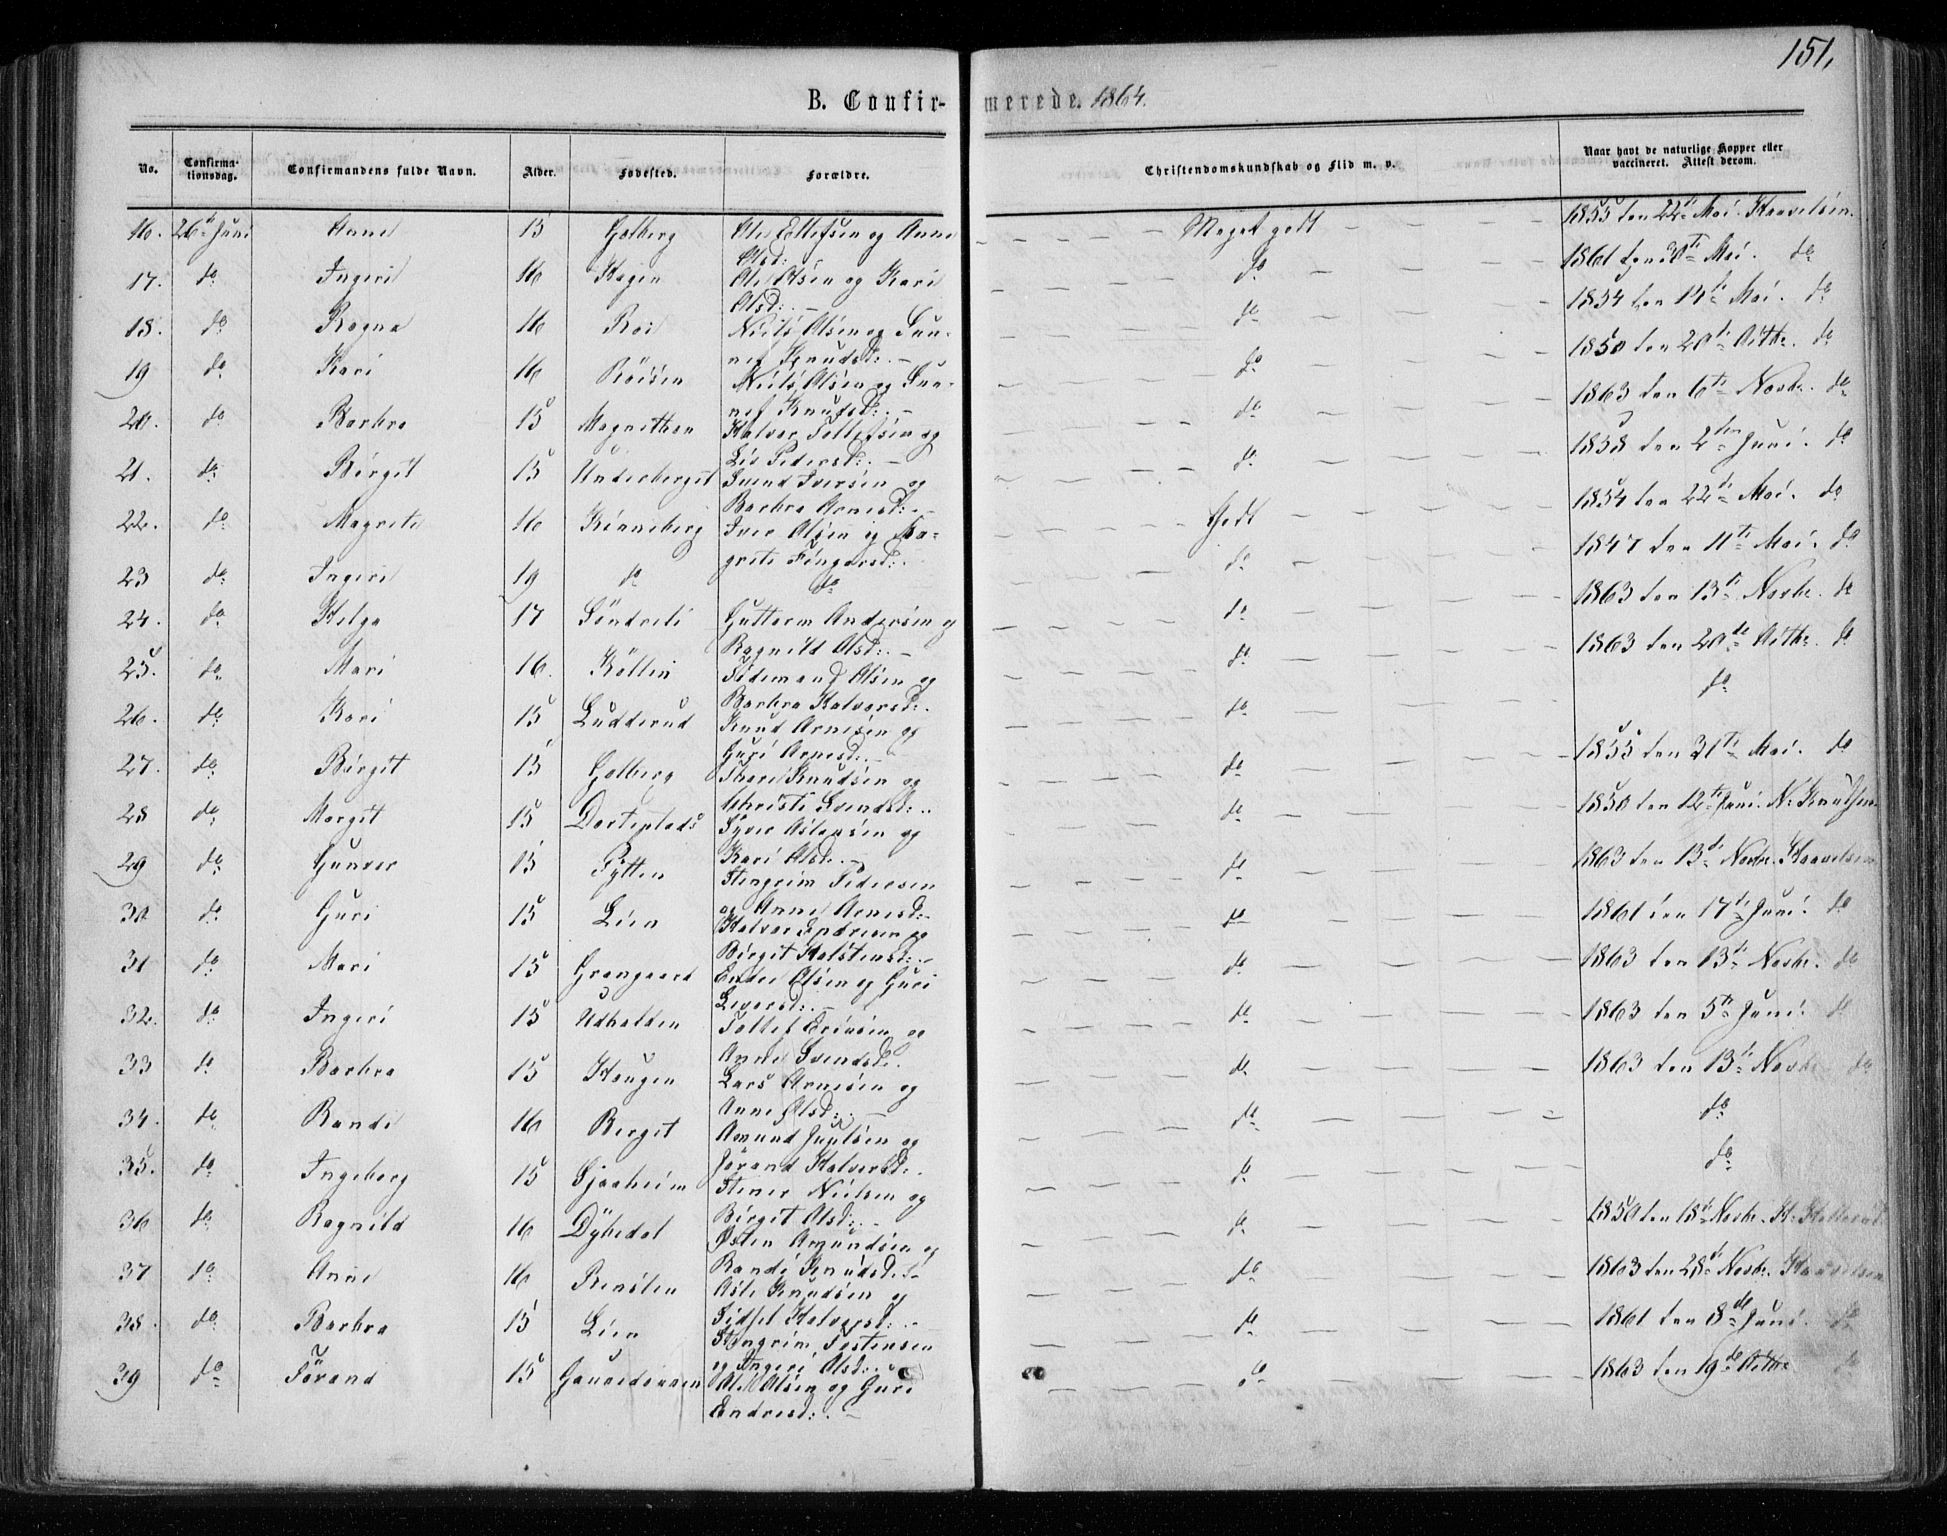 151.
B. Confirmerede. 1864.
No. Confirmationsdag. Confirmandens fulde Navn. Alder. Fødested. Forældre. Christendomskundskab og Flid m. v. Naar havt de naturlige Kopper eller vaccineret. Attest derom.
16. 26de Juni Anne 15 Golberg Ole Ellefsen og Anne Olsd: Meget godt 1855 den 22de Mai. Haavelsen
17. do Ingeri 16 Hagen Ole Olsen og Kari Olsd: do 1861 den 30te Mai. do
18. do Ragna 16 Roi Niels Olsen og Sunnef Knudsd: do 1854 den 14de Mai. do
19 do Kari 16 Röisen Niels Olsen og Sunnef Knudsd: do 1850 den 20de Octbr. do
20. do Barbra 15 Halvor Tollefsen og Liv Pedersd: do 1863 den 6te Novbr. do
21. do Birgit 15 Underberget Svend Iversen og Barbra Arnesd: do 1858 den 2den Juni. do
22. do Magrete 16 Kinneberg Iver Olsen og Magrete Fingarsd: Godt 1854 den 22de Mai. do
23 do Ingeri 19 do do do 1847 den 11te Mai. do
24. do Helga 17 Söndreli Guttorm Andersen og Ragnild Olsd: do 1863 den 13de Novbr. do
25. do Mari 16. Köllin Tidemand Olsen og Barbra Halvorsd: do 1863 den 20de Octbr. do
26. do Kari 15 Ludderud Knud Arnesen og Guri Arnesd: do do
27. do Birgit 15 Golberg Knudsen og Christi Svendsd: do 1855 den 31te Mai. do
28 do Margit 15 Dorteplads Syver Aslansen og Kari Olsd: do 1850 den 12te Juni. N. Knudsen
29 do Gunvor 15 Pytten Stengrim Pedersen og Anne Arnesd: do 1863 den 13de Novbr. Haavelsen
30 do Guri 15 Lien Halvor og Birgit Halstensd: do 1861 den 17de Juni. do
31 do Mari 15 Grangaard Endre Olsen og Guri Sivarsd: do 1863 den 13de Novbr. do
32. do Ingeri 15 Udhalden Tollef Eriksen og Anne Svendsd. do 1863 den 5te Juni. do
33 do Barbra 15 Haugen Lars Arnesen og Anne Olsd: do 1863 den 13de Novbr. do
34. do Randi 16 Berget Amund Juulsen og Jörand Halvorsd: do do
35. do Ingeborg 15 Gjaaheim Stener Nielsen og Birgit Olsd: do do
36 do Ragnild 16 Dybedal Østen Amundsen og Randi Knudsd: do 1850 den 18de Novbr. H.
37 do Anne 16 Rensten Asle Knudsen og Sidsel Halvorsd: do 1863 den 28de Novbr. Haavelsen
38. do Barbra 15 Lien Stengrim Torstensen og Ingeri Olsd: do 1861 den 8de Juni. do
39 do Jörand 15 Ole Olsen og Guri Endresd: do 1863 den 19de Octbr. do